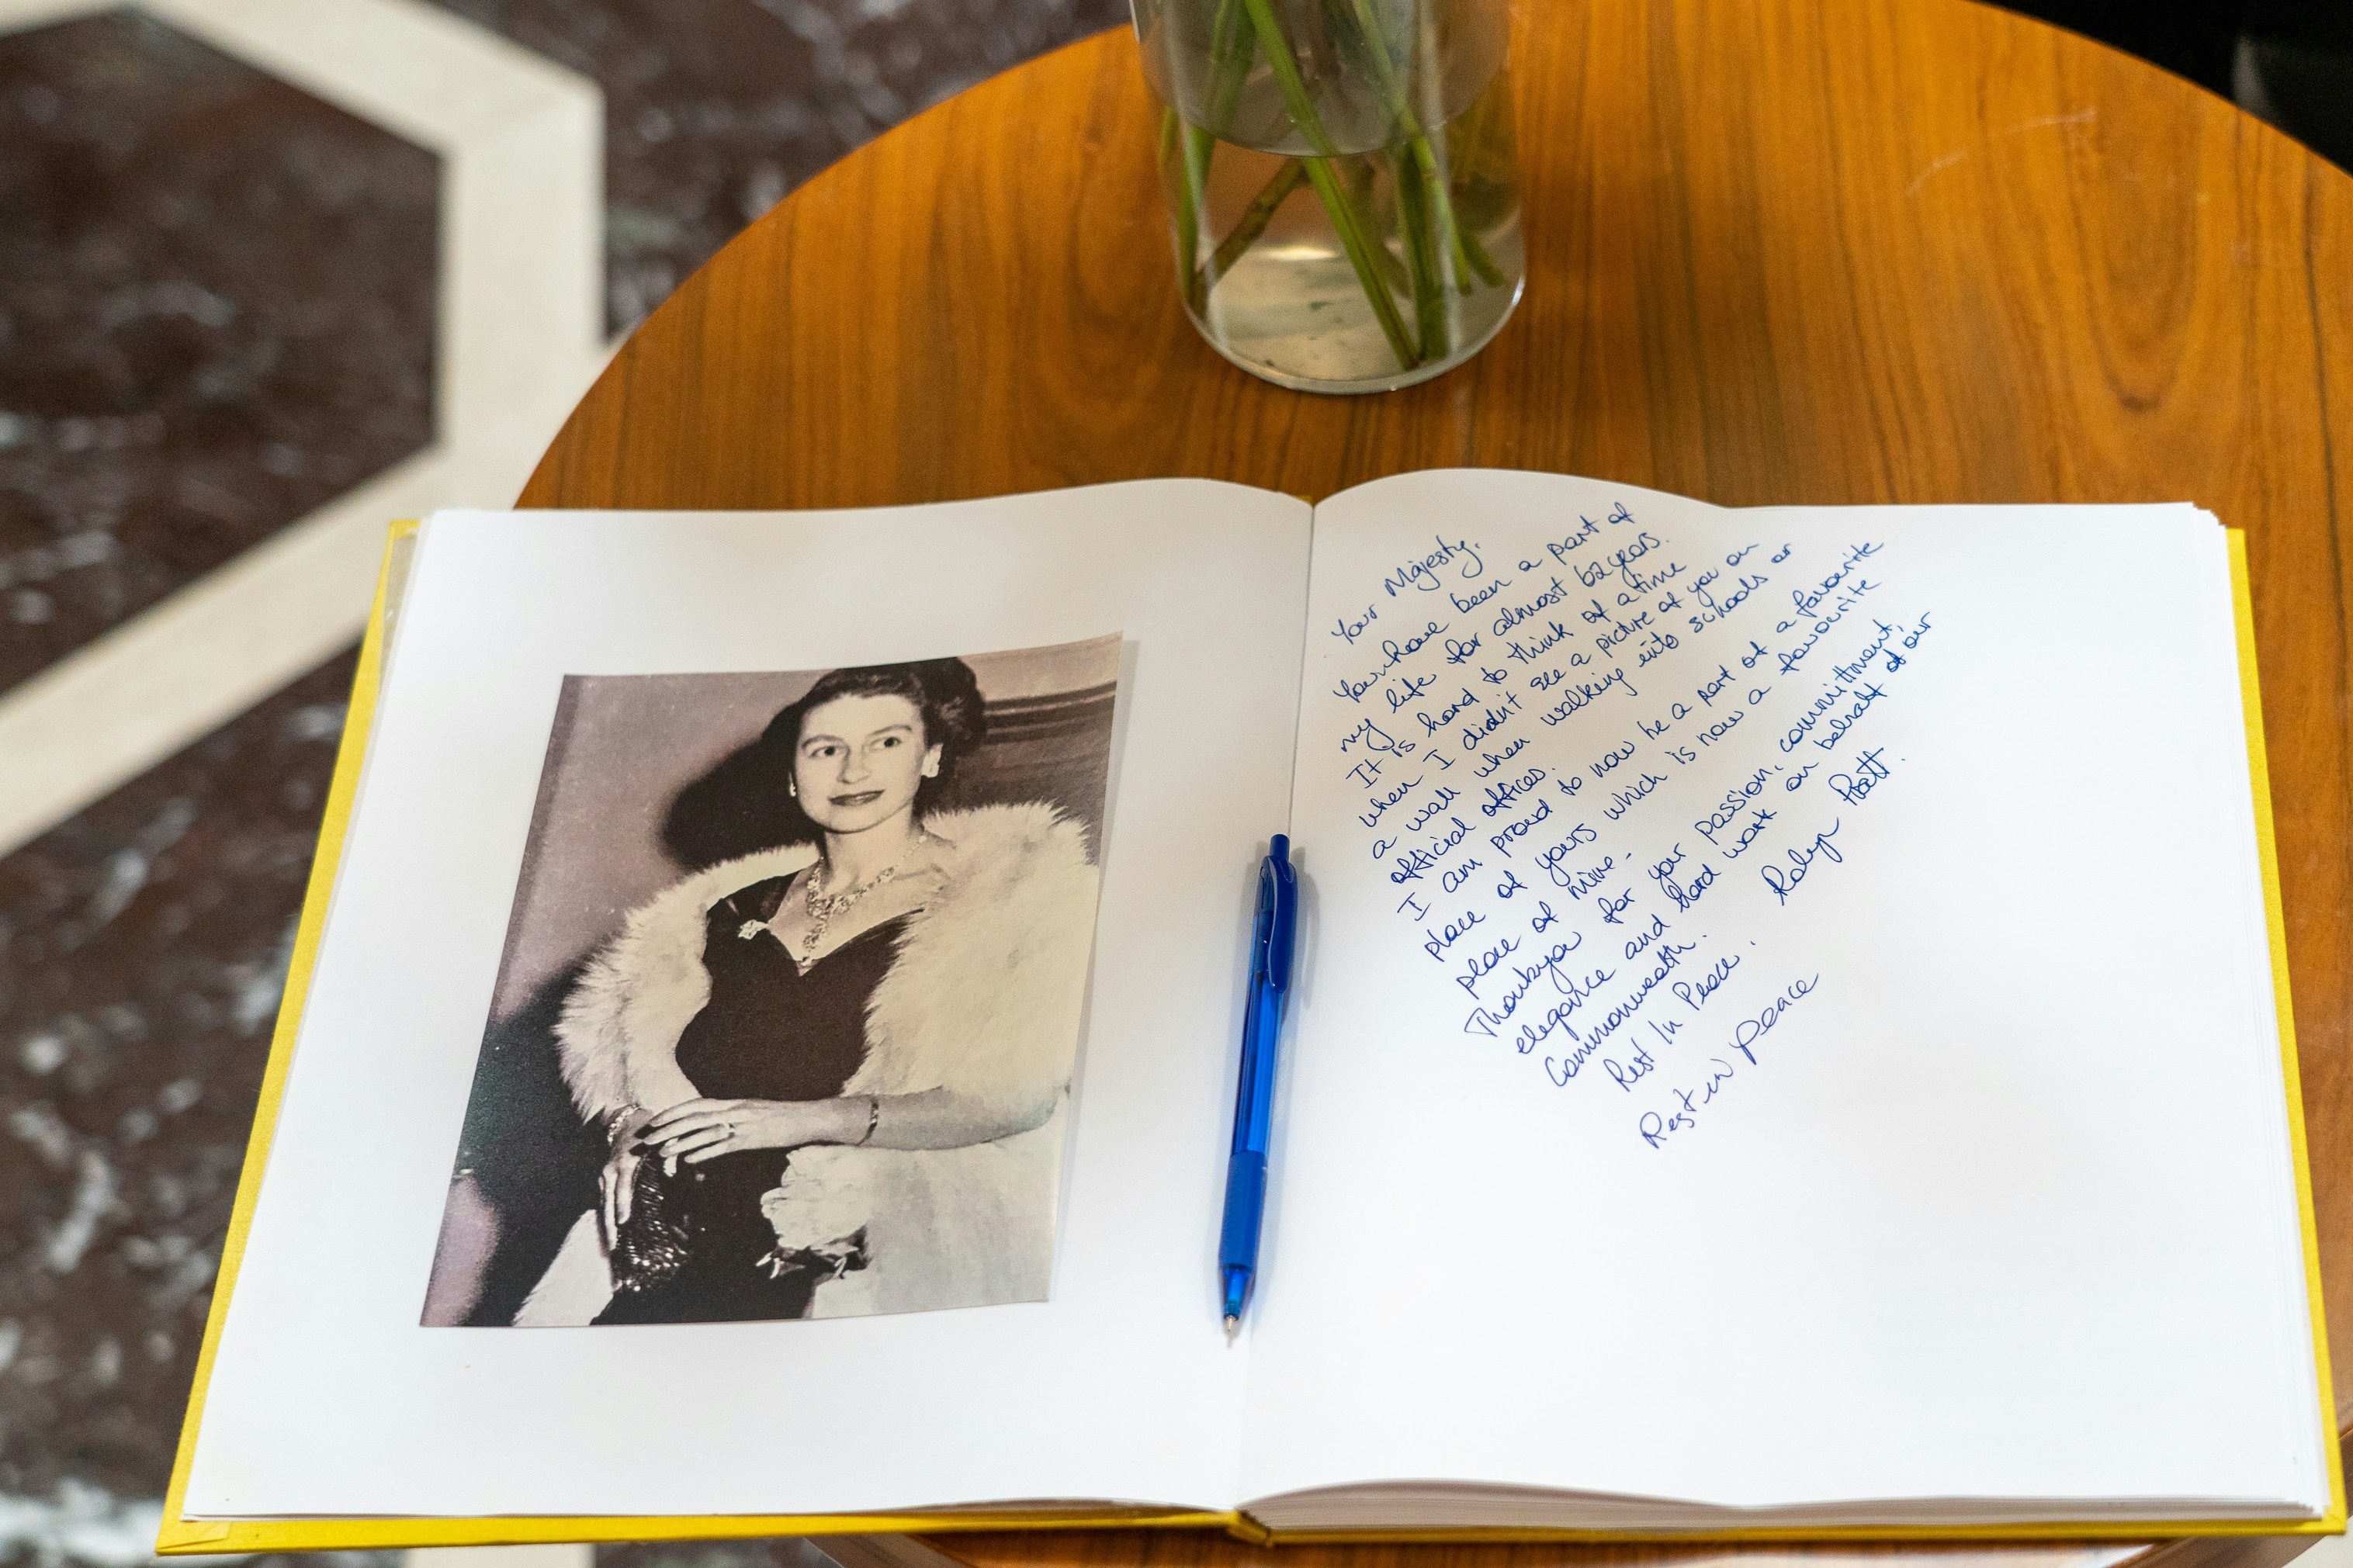 Your Majesty.
You have been a part of
my life for almost 62 years.
It is hard to think of a time
when I didn't see a picture of you on
a wall when walking into schools or
official offices.
I am proud to now be a part of a favourite
place of yours which is now a favourite
place of mine.
Thankyou for your passion, committment,
elegance and hard work on behalf of our
Commonwealth.
Rest In Peace. Robyn Pratt.
Rest in Peace